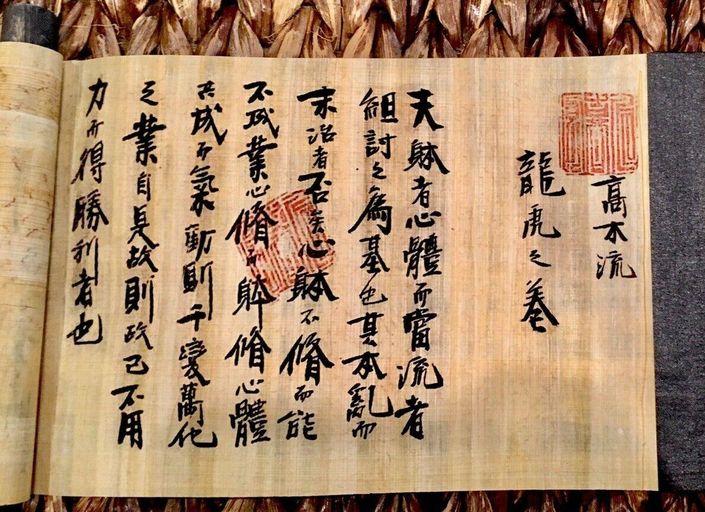 高木流
龍虎之巻
夫躰者心體而當流者
組討之爲基也其本亂而
末治者否矣心躰不脩而能
不成業心脩而躰脩心體
共成而氣動則千變萬化
之業自故則故己不用
力而得勝利者也